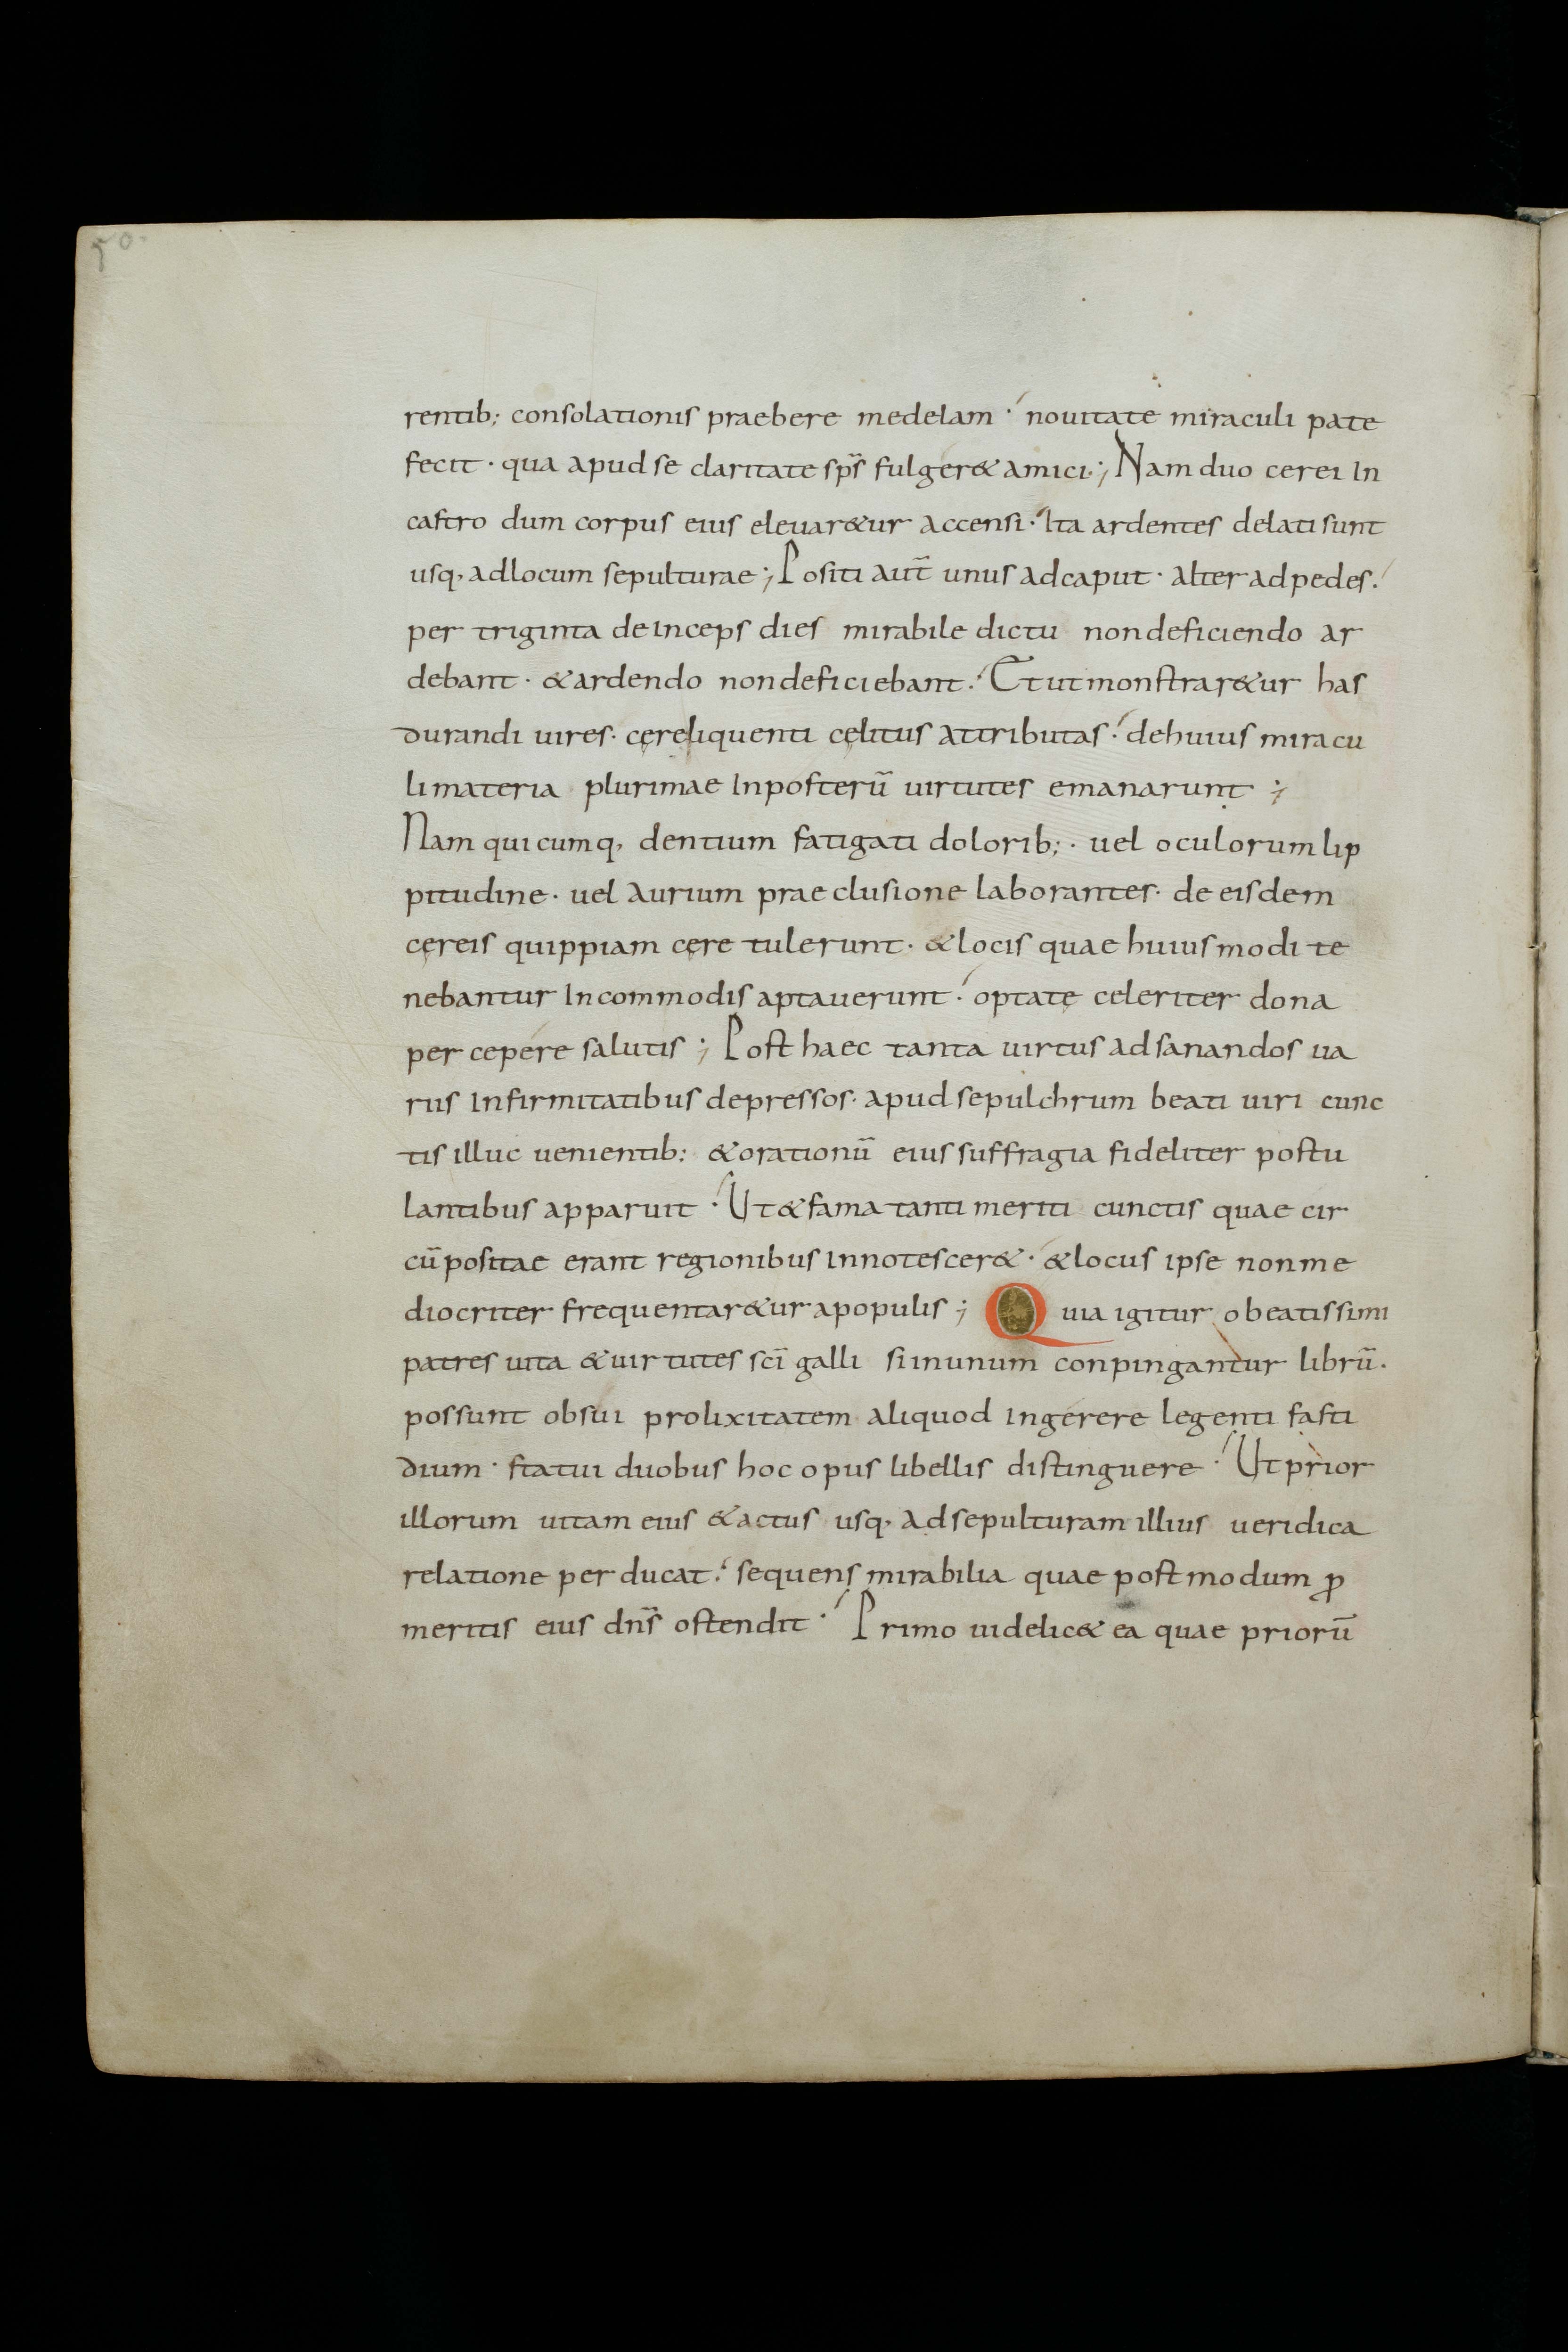 50.
rentib; consolationis praebere medelam · nouitate miraculi pate
fecit · qua apud se claritate sp̅s fulger& amici ; Nam duo cerei in
castro dum corpus eius eleuar&ur accensi · Ita ardentes delati sunt
usq, ad locum sepulturae ; Positi aut̅ unus ad caput · alter ad pedes.
per triginta deinceps dies mirabile dictu non deficiendo ar
debant · & ardendo non deficiebant. Et ut monstrar&ur has
durandi uires · cęrę liquenti cęlitus attributas · de huius miracu
li materia plurimae in posterū uirtutes emanarunt ;
Nam quicumq, dentium fatigati dolorib; · uel oculorum lip
pitudine · uel aurium praeclusione laborantes · de eisdem
cęreis quippiam cęre tulerunt · & locis quae huiusmodi te
nebantur incommodis aptauerunt · optatę celeriter dona
percepere salutis ; Post haec tanta uirtus ad sanandos ua
riis infirmitatibus depressos · apud sepulchrum beati uiri cunc
tis illuc uenientib; & orationū eius suffragia fideliter postu
lantibus apparuit · Ut & fama tanti meriti cunctis quae cir
cū positae erant regionibus innotescer& · & locus ipse non me
diocriter frequentar&ur a populis ; Quia igitur o beatissimi
patres uita & uirtutes sc̅i galli si in unum conpingantur librū ·
possunt ob sui prolixitatem aliquod ingerere legenti fasti
dium · statui duobus hoc opus libellis distinguere · Ut prior
illorum uitam eius & actus usq, ad sepulturam illius ueridica
relatione perducat · sequens mirabilia quae postmodum ꝓ
meritis eius dn̅s ostendit · Primo uidelic& ea quae priorū